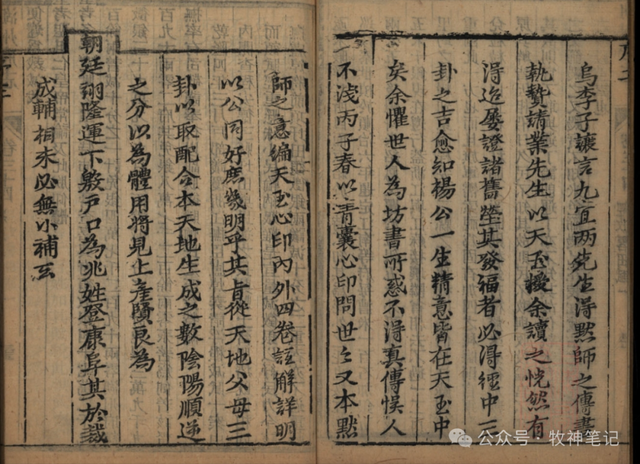 烏李子讓言九宜两先生得黙師之傳書
執贄請業先生以天玉授余讀之恍然有
得迄屡證諸舊塋其發福者必得經中一
卦之吉愈知楊公一生精意皆在天玉中
矣余懼世人為坊書所惑不得真傳悮人
不淺丙子春以青囊心印問世〻又本黙
師之意編天玉心印內外四卷註解詳明
以公同好庶幾明乎其貞從天地公母三
卦以取配合本天地生成之數陰陽順逆
之分以為體用將見上産良為
朝廷翊隆運下敷戶口為兆姓登康阜其於裁
成輔相未必無小補云
公众号·牧神笔记